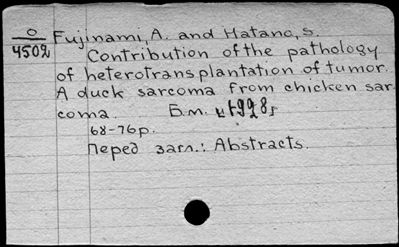 О
4502
Fujinami, A. and Hatano, S.
Contribution of the pathology
of heterotransplantation of tumor.
A duck sarcoma from chicken sar
coma. Б.м. и 1928г
68-76p.
Перед загл.: Abstracts.